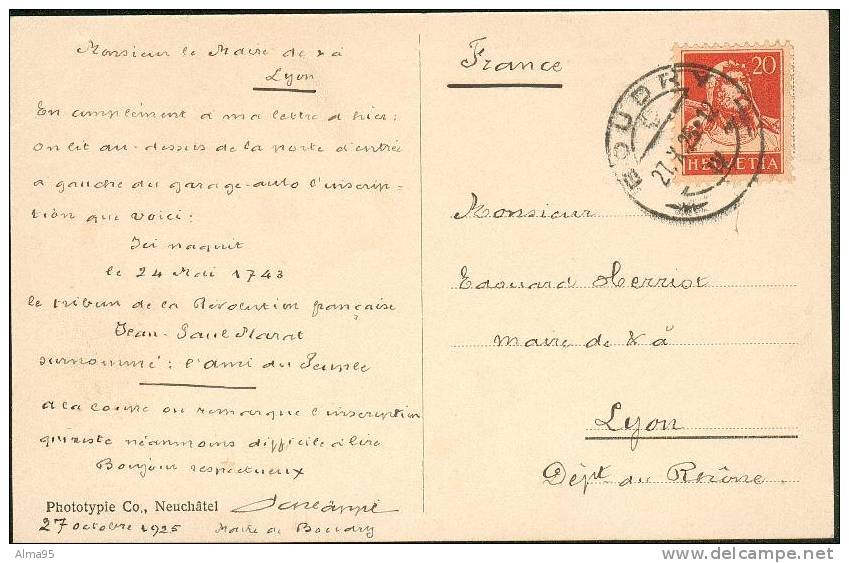 Monsieur le Maire de & à
Lyon
En complément à ma lettre d'hier:
on lit au-dessus de la porte d'entrée
à gauche du garage-auto l'inscrip-
tion que voici:
Ici naquit
le 24 Mai 1743
le tribun de la Révolution française
Jean-Paul Marat
surnommé: l'ami du Peuple
à la loupe on remarque l'inscription
néanmoins difficile à lire
Bonjour respectueux
Phototypie Co., Neuchâtel
27 octobre 1925 Maire de Boudry
France
20
HELVETIA
BOUDRY
27.X.25
Monsieur
Edouard Herriot
maire de & à
Lyon
Dépt. du Rhône
Alma95
delcampe.net